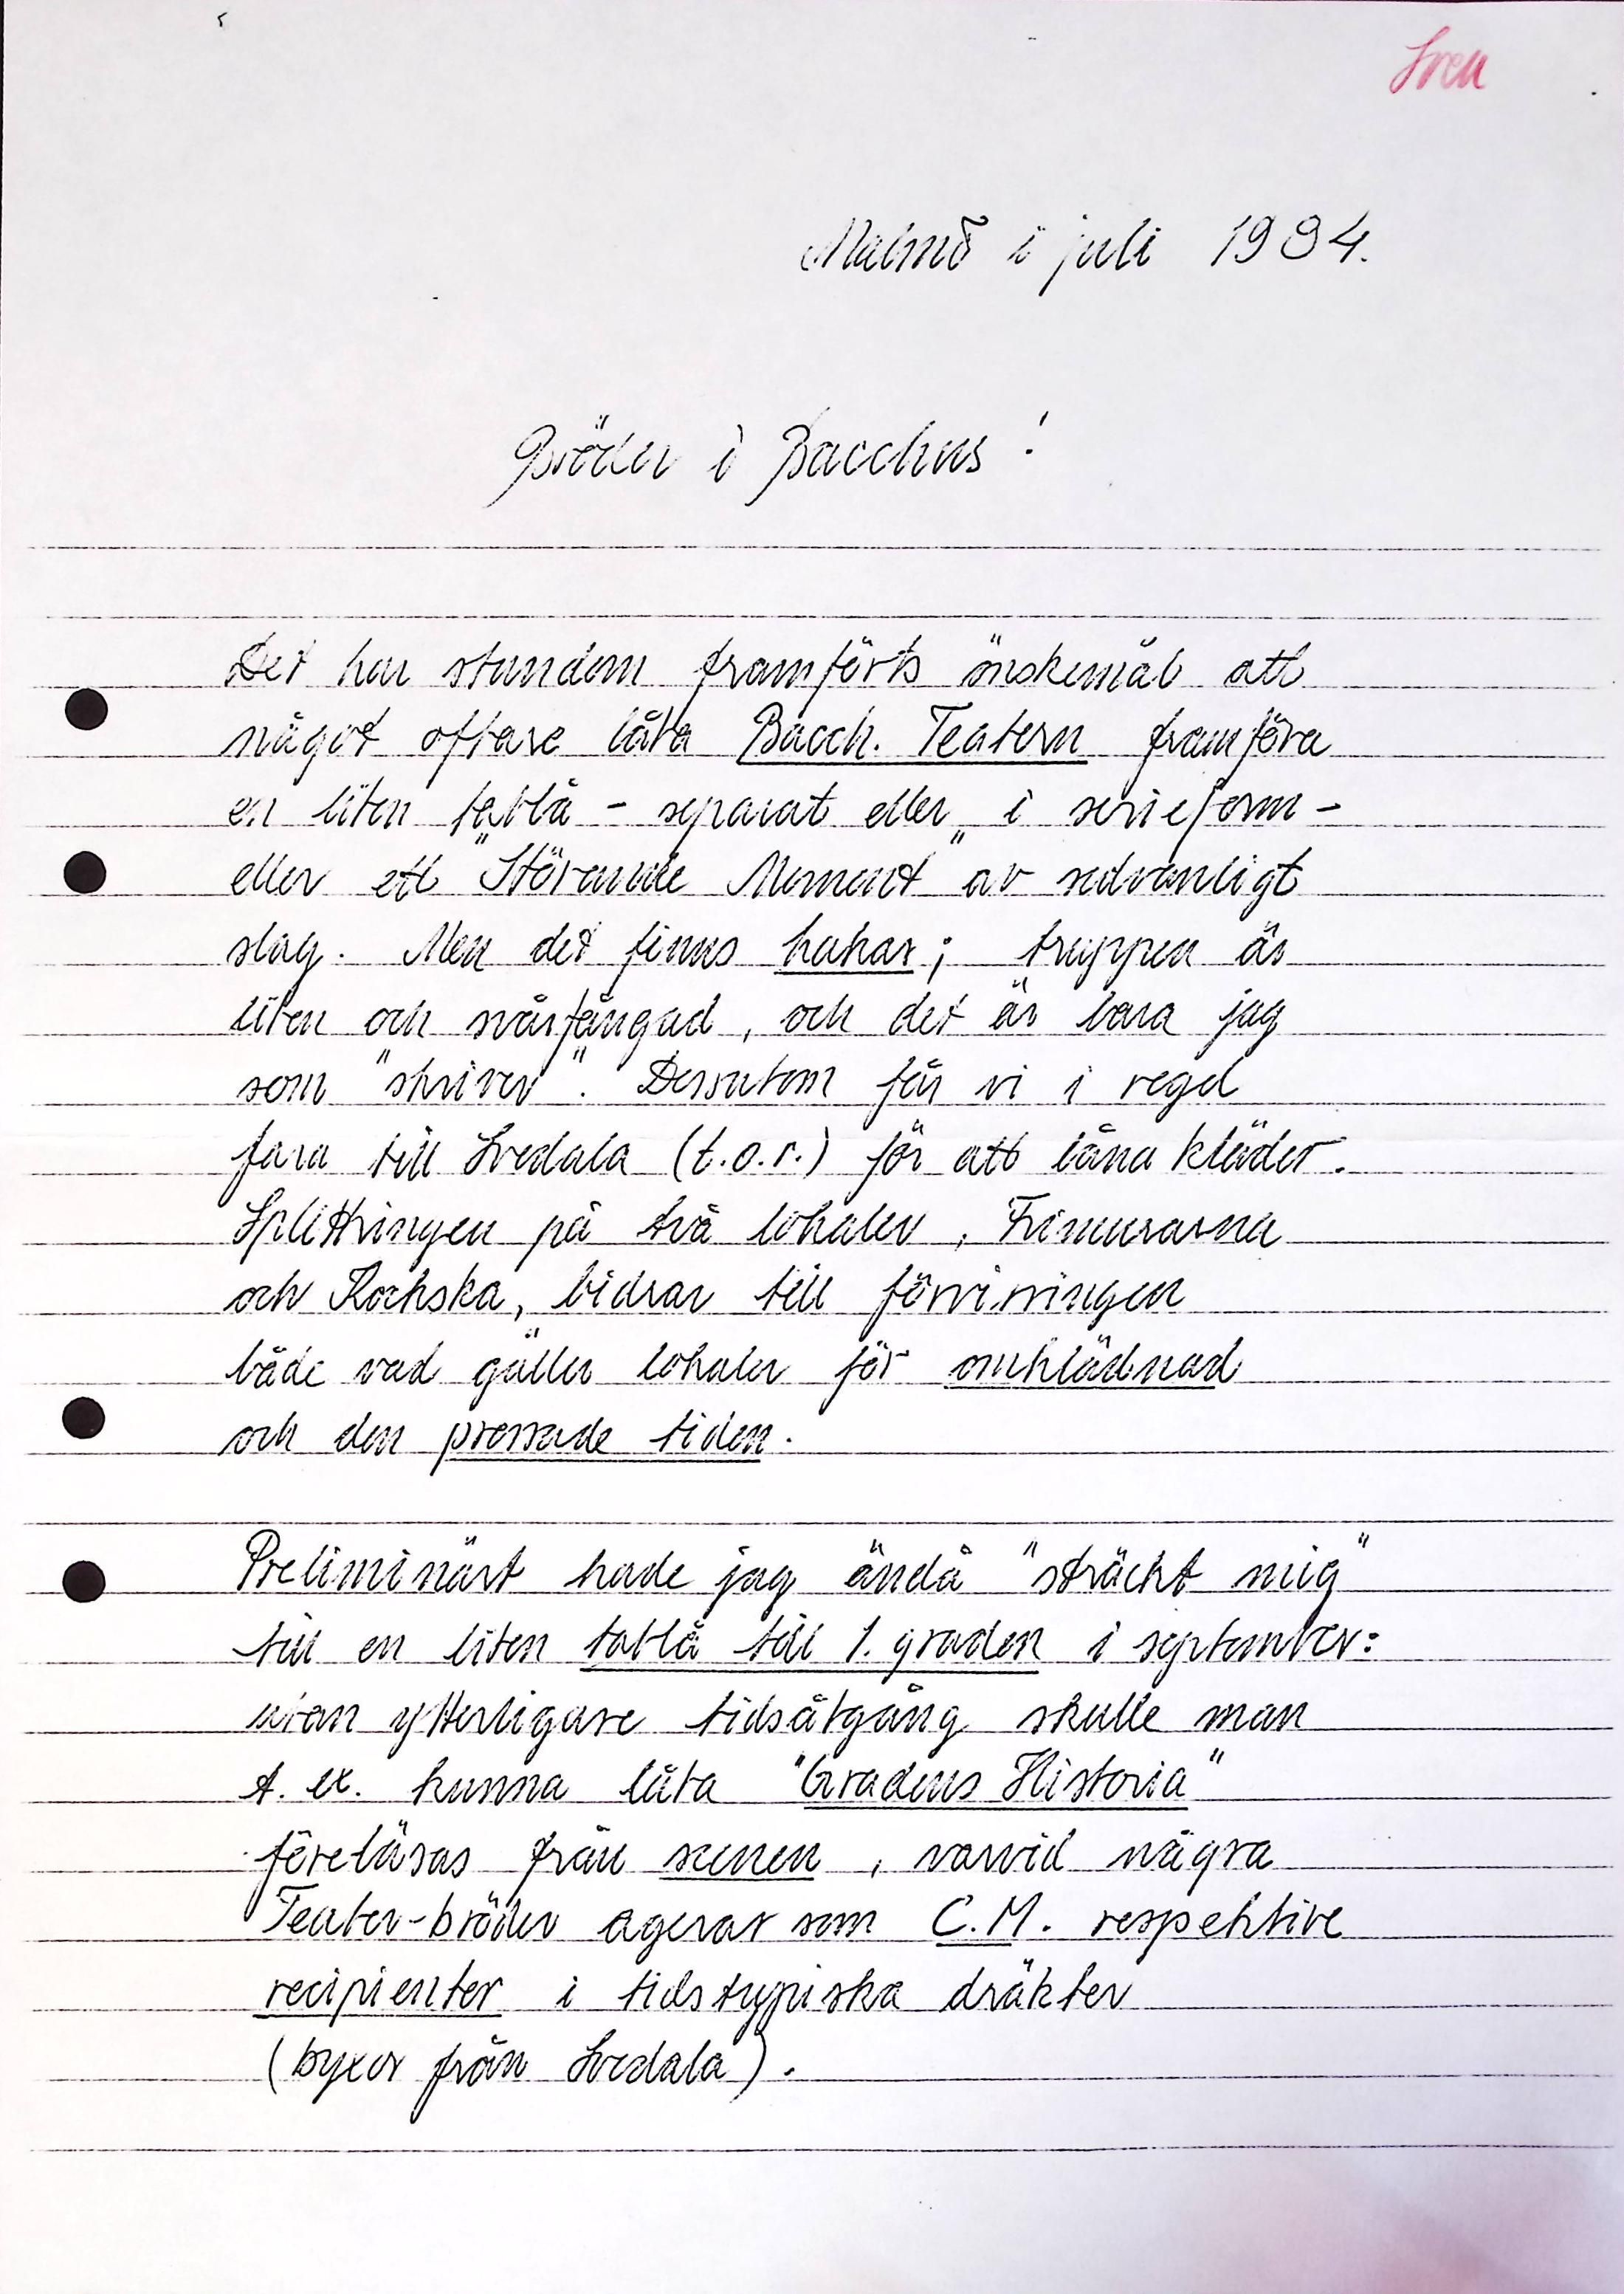 Sven
Malmö i juli 1994.
Bröder i Bacchus!
Det har stundom framförts önskemål att
något oftare låta Bacch. Teatern framföra
en liten tablå - separat eller i serieform -
eller ett "Störande Moment" av sedvanligt
slag. Men det finns hakar; truppen är
liten och svårfångad, och det är bara jag
som "skriver". Dessutom får vi i regel
fara till Svedala (t.o.r.) för att låna kläder.
Splittringen på två lokaler, Frimurarna
och Kockska, bidrar till förvirringen
både vad gäller lokaler för omklädnad
och den pressade tiden.
Preliminärt hade jag ändå "sträckt mig"
till en liten tablå till 1. graden i september:
utan ytterligare tidsåtgång skulle man
t. ex. kunna låta "Gradens Historia"
föreläsas från scenen, varvid några
Teater-bröder agerar som C.M. respektive
recipienter i tidstypiska dräkter
(byxor från Svedala).